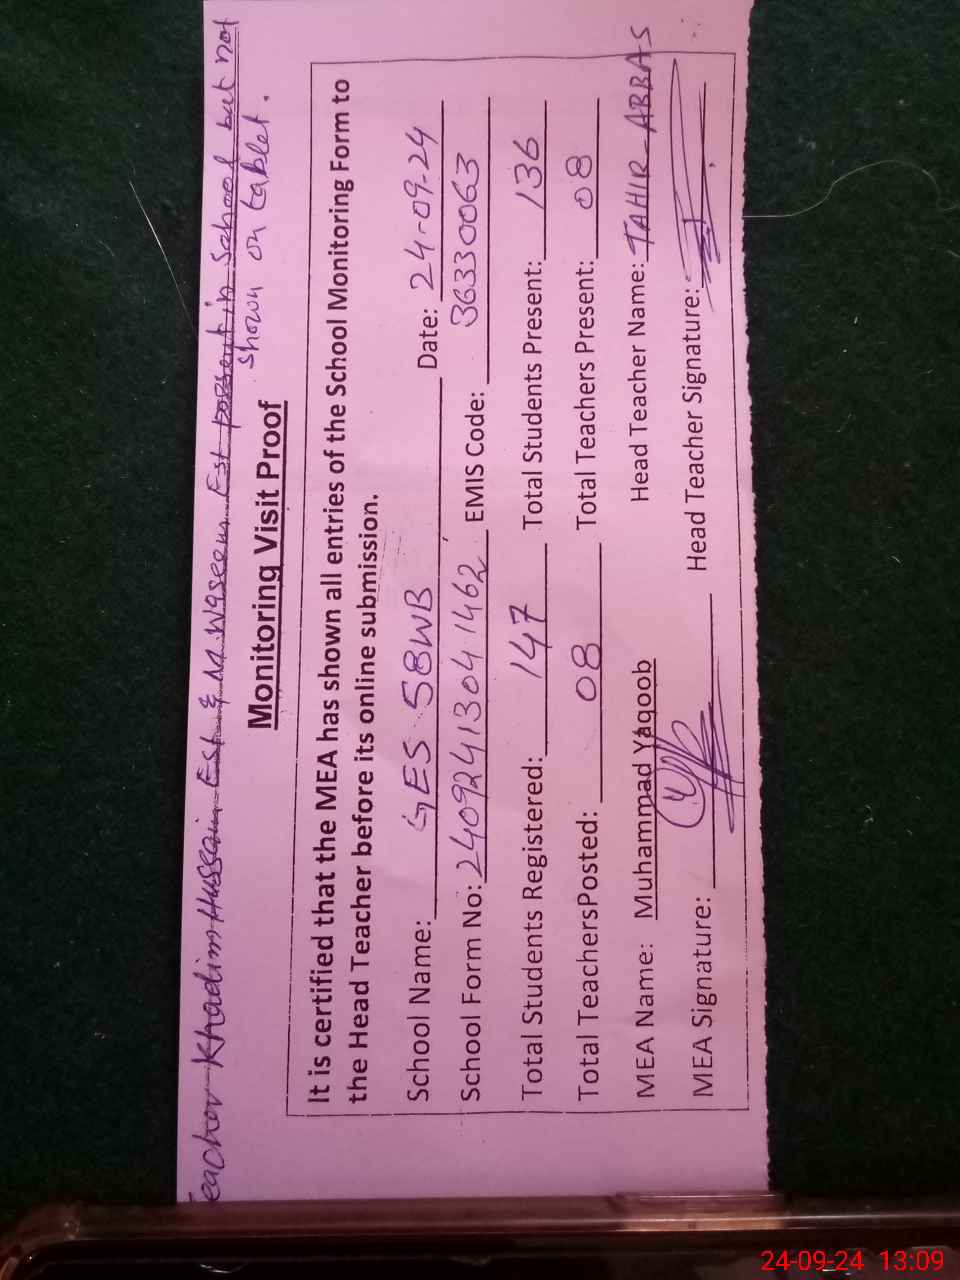 Teacher Khadim Hussain Est & M. Waseem Est present in School but not
shown on tablet.
Monitoring Visit Proof
It is certified that the MEA has shown all entries of the School Monitoring Form to
the Head Teacher before its online submission.
School Name: GES 58WB Date: 24-09-24
School Form No: 24092413041462 EMIS Code: 36330063
Total Students Registered: 147 Total Students Present: 136
Total TeachersPosted: 08 Total Teachers Present: 08
MEA Name: Muhammad Yaqoob Head Teacher Name: TAHIR ABBAS
MEA Signature: Head Teacher Signature:
24-09-24 13:09